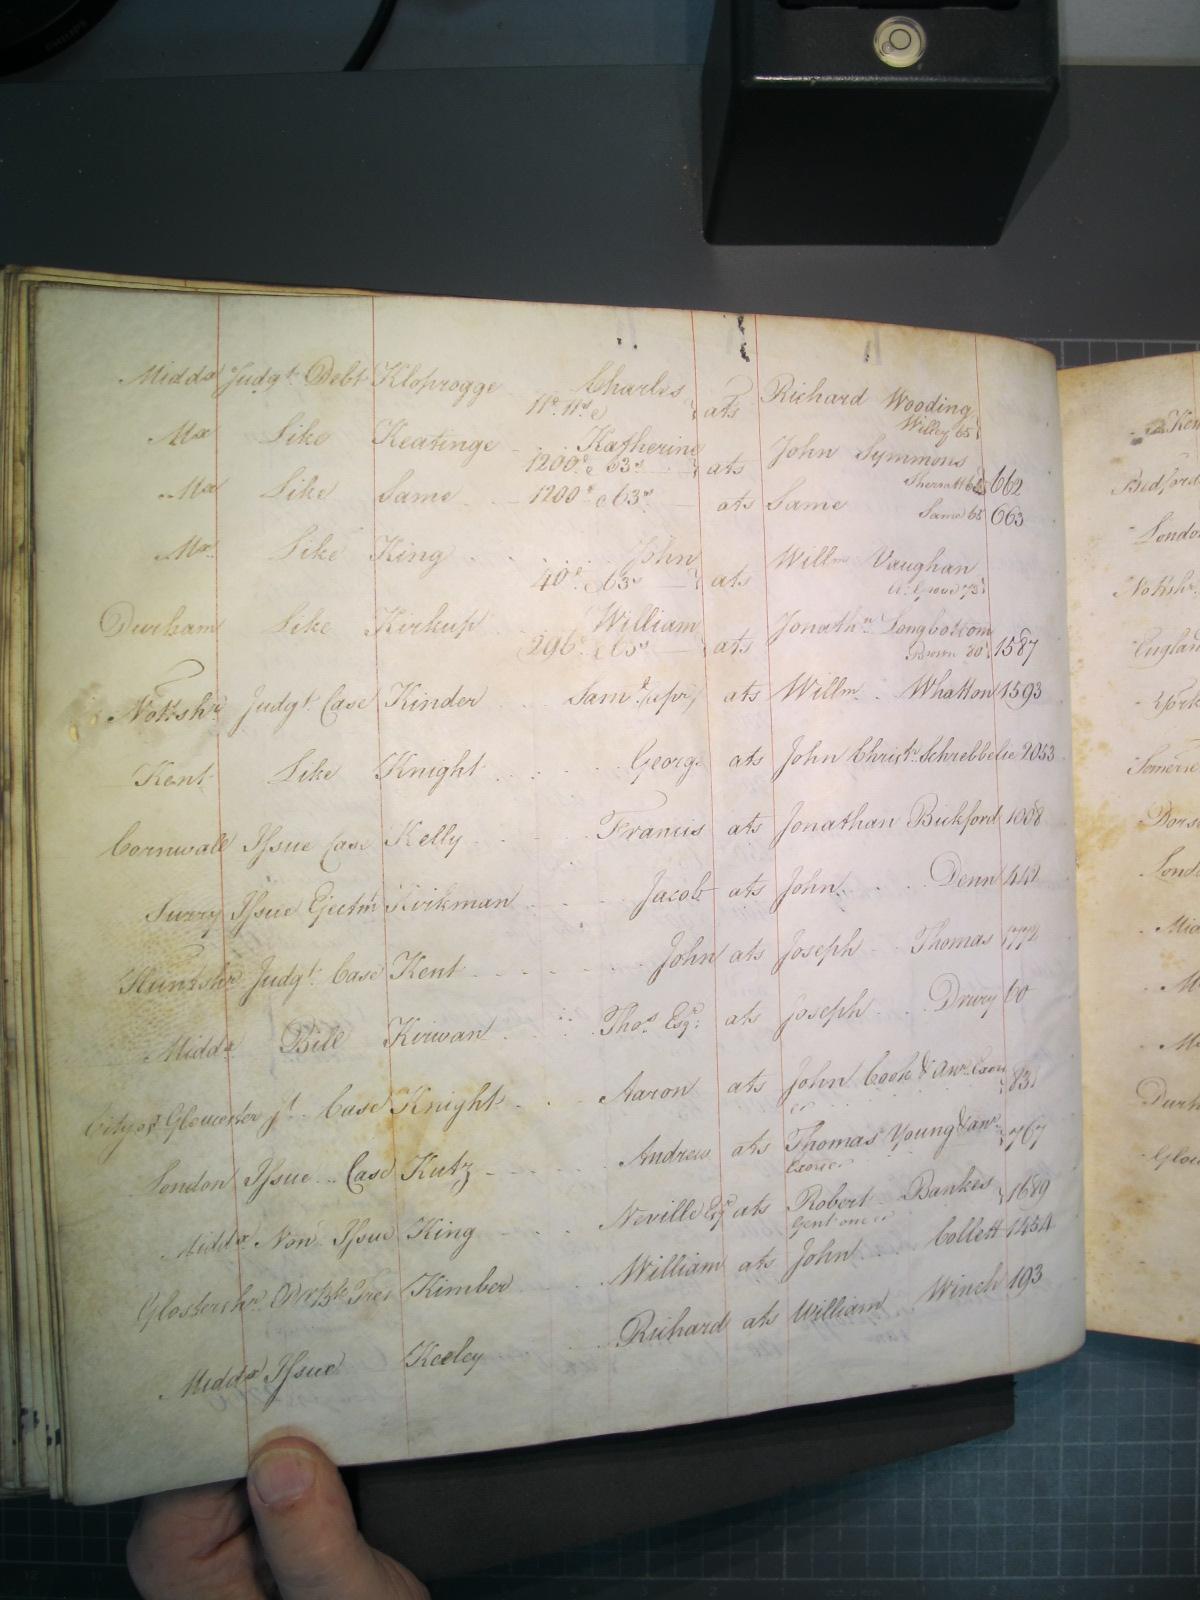 Midd.x Judg.t Debt Kloprogge Charles ats Richard Wooding
11.s 11.d Willey 65
Mx Like Keatinge Katherine ats John Symmons
1200.£ & 63.s Sherratt 662
Mx Like Same 1200.£ & 63.s ats Same Same 65 663
Mx Like King John ats Will.m Vaughan
40.£ & 63.s
Durham Like Kirkup William ats Jonath.n Longbottom
296.£ Brown 30 1587
Nottshr Judg.t Case Kinder Sam.l ats Will.m Whatton 1593
Kent Like Knight George ats John Christ.r Schrebbelie 2053
Cornwall Issue Case Kelly Francis ats Jonathan Bickford 1008
Surry Issue Ejectm.t Kirkman Jacob ats John Denn 442
Huntshr Judg.t Case Kent John ats Joseph Thomas 1772
Midd.x Bill Kirwan Tho.s Esq.r ats Joseph Drury 60
City of Gloucester J.t Case Knight Aaron ats John Cook & an.r Exors 831
London Issue Case Kutz Andrew ats Thomas Young & an.r 767
Midd.x Non Issue King Neville Esq.r ats Robert Bankes 1689
Gent one &c
Glostershr Kimber William ats John Collett 1454
Midd.x Issue Keeley Richard ats William Winch 193
Ken
Bedford
London
Nottshr
England
York
Somerse
Dors
Lond
Mid
M
M
Durh
Glou